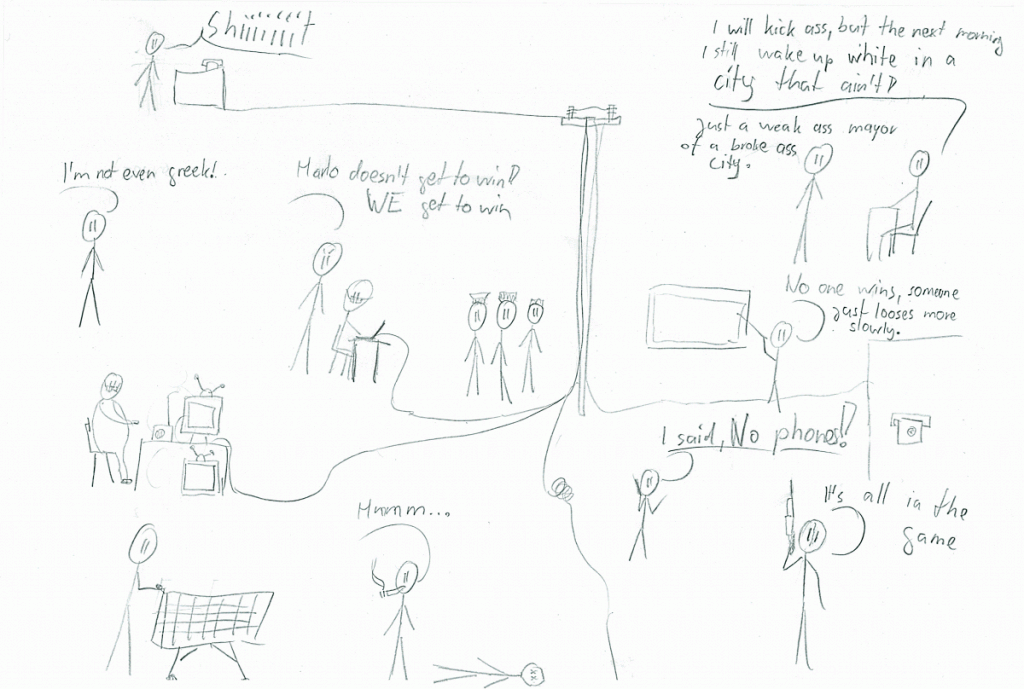 Shiiiiiiit
I will kick ass, but the next morning
I still wake up white in a
city that ain't!
Just a weak ass mayor
of a broke ass
city.
I'm not even greek!..
Marlo doesn't get to win!
WE get to win
No one wins, someone
just looses more
slowly.
I said, No phones!!
It's all in the
game
Hmmm...